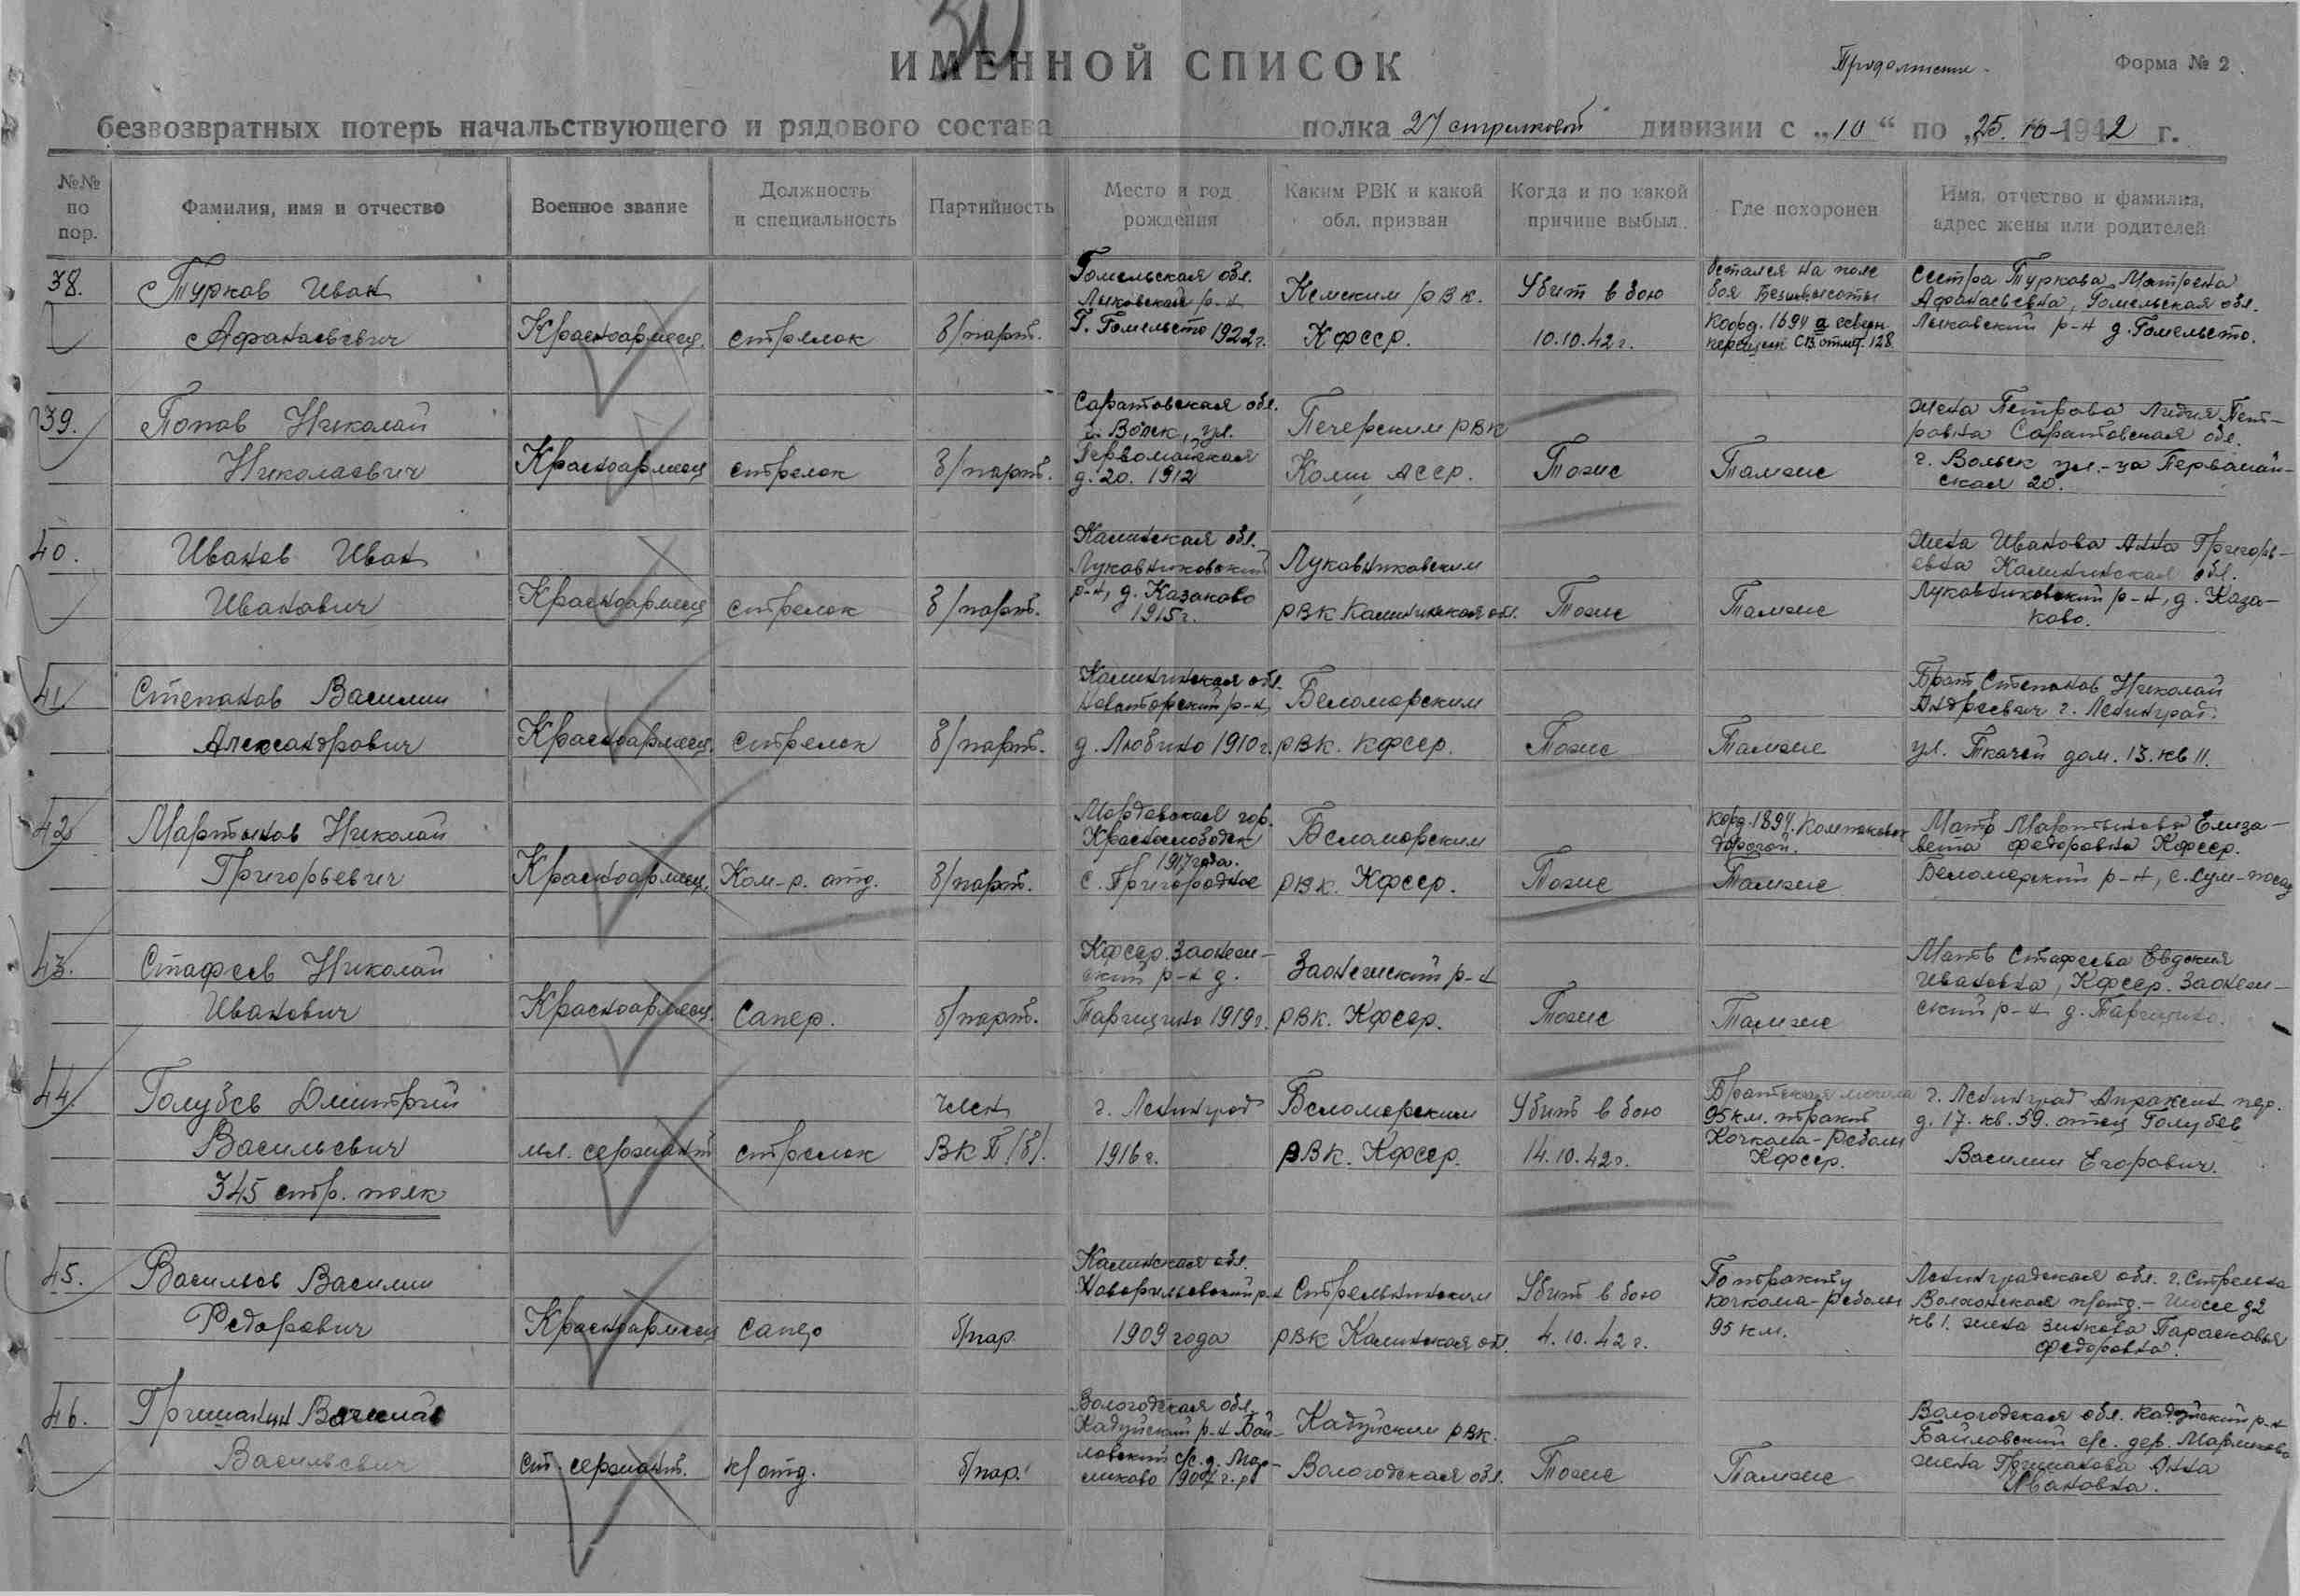 30
ИМЕННОЙ СПИСОК
Форма № 2
безвозвратных потерь начальствующего и рядового состава полка 27 стрелковой дивизии с „10“ по „25.10 1942 г.
№№ по пор.
Фамилия, имя и отчество
Военное звание
Должность и специальность
Партийность
Место и год рождения
Каким РВК и какой обл. призван
Когда и по какой причине выбыл
Где похоронен
Имя, отчество и фамилия, адрес жены или родителей
38.
Турков Иван
Афанасьевич
Красноармеец.
стрелок
б/парт.
Гомельская обл.
Лоховская р-н
1922г.
Кемским РВК.
КФССР.
Убит в бою
10.10.42г.
Остался на поле
боя
Сестра Туркова Матрена
Афанасьевна, Гомельская обл.
39.
Попов Николай
Николаевич
Красноармеец
стрелок
б/парт.
Саратовская обл.
г. Вольск, ул.
Первомайская
д. 20. 1912
Печерским РВК
Коми АССР.
Тоже
Тамже
жена Петрова Лидия Пет-
ровна Саратовская обл.
г. Вольск ул-ца Первомай-
ская 20.
40.
Иванов Иван
Иванович
Красноармеец
стрелок
б/парт.
Калинская обл.
Луковниковский
р-н, д. Казаково
1915г.
Луковниковским
РВК Калининская обл.
Тоже
Тамже
жена Иванова Анна Григорь-
евна Калининская обл.
Луковниковский р-н, д. Каза-
ково.
41
Степанов Василии
Александрович
Красноармеец.
стрелок
б/парт.
Калининская обл.
Новоторский р-н,
д. Любино 1910г.
Беломорским
РВК. КФССР.
Тоже
Тамже
Брат Степанов Николай
Андреевич г. Ленинград.
ул. Ткачей дом. 13. кв 11.
42
Мартынов Николай
Григорьевич
Красноармеец.
Ком-р. отд.
б/парт.
Мордовская гор.
Краснослободск
1917 года.
с. Пригородное
Беломорским
РВК. КФССР.
Тоже
Тамже
Мать Мартынова Елиза-
вета Федоровна КФССР.
Беломорский р-н, с. Сум-посад
43.
Стафеев Николай
Иванович
Красноармеец.
Сапер.
б/парт.
КФССР. Заонеж-
ский р-н д.
Таргицино 1919г.
Заонежский р-н
РВК. КФССР.
Тоже
Тамже
Мать Стафеева Евдокия
Ивановна, КФССР. Заонеж-
ский р-н д. Таргицино.
44.
Голубев Дмитрий
Васильевич
345 стр. полк
мл. сержант
стрелок
член
ВКП(б).
г. Ленинград
1916г.
Беломорским
РВК. КФССР.
Убит в бою
14.10.42г.
Братская могила
95 км. тракт
Кочкома-Реболы
КФССР.
г. Ленинград Апраксин пер.
д. 17. кв. 59. отец Голубев
Василии Егорович.
45.
Васильев Василии
Федорович
Красноармеец
Сапер
б/пар.
Калинская обл.
Новоржевский р-н
1909 года
Стрельнинским
РВК Калинская обл.
Убит в бою
4.10.42г.
По тракту
Кочкома-Реболы
95 км.
Ленинградская обл. г. Стрельна
Волхонская
кв 1. жена Зинкова Парасковья
Федоровна.
46.
Василь
Васильевич
ст. сержант.
к/отд.
б/пар.
Вологодская обл.
Кадуйский р-н Бай-
ловский с/с. д. Мар-
1907 г. р
Кадуйским РВК.
Вологодская обл.
Тоже
Тамже
Вологодская обл. Кадуйский р-н
Байловский с/с. дер.
жена Гришанова Анна
Ивановна.